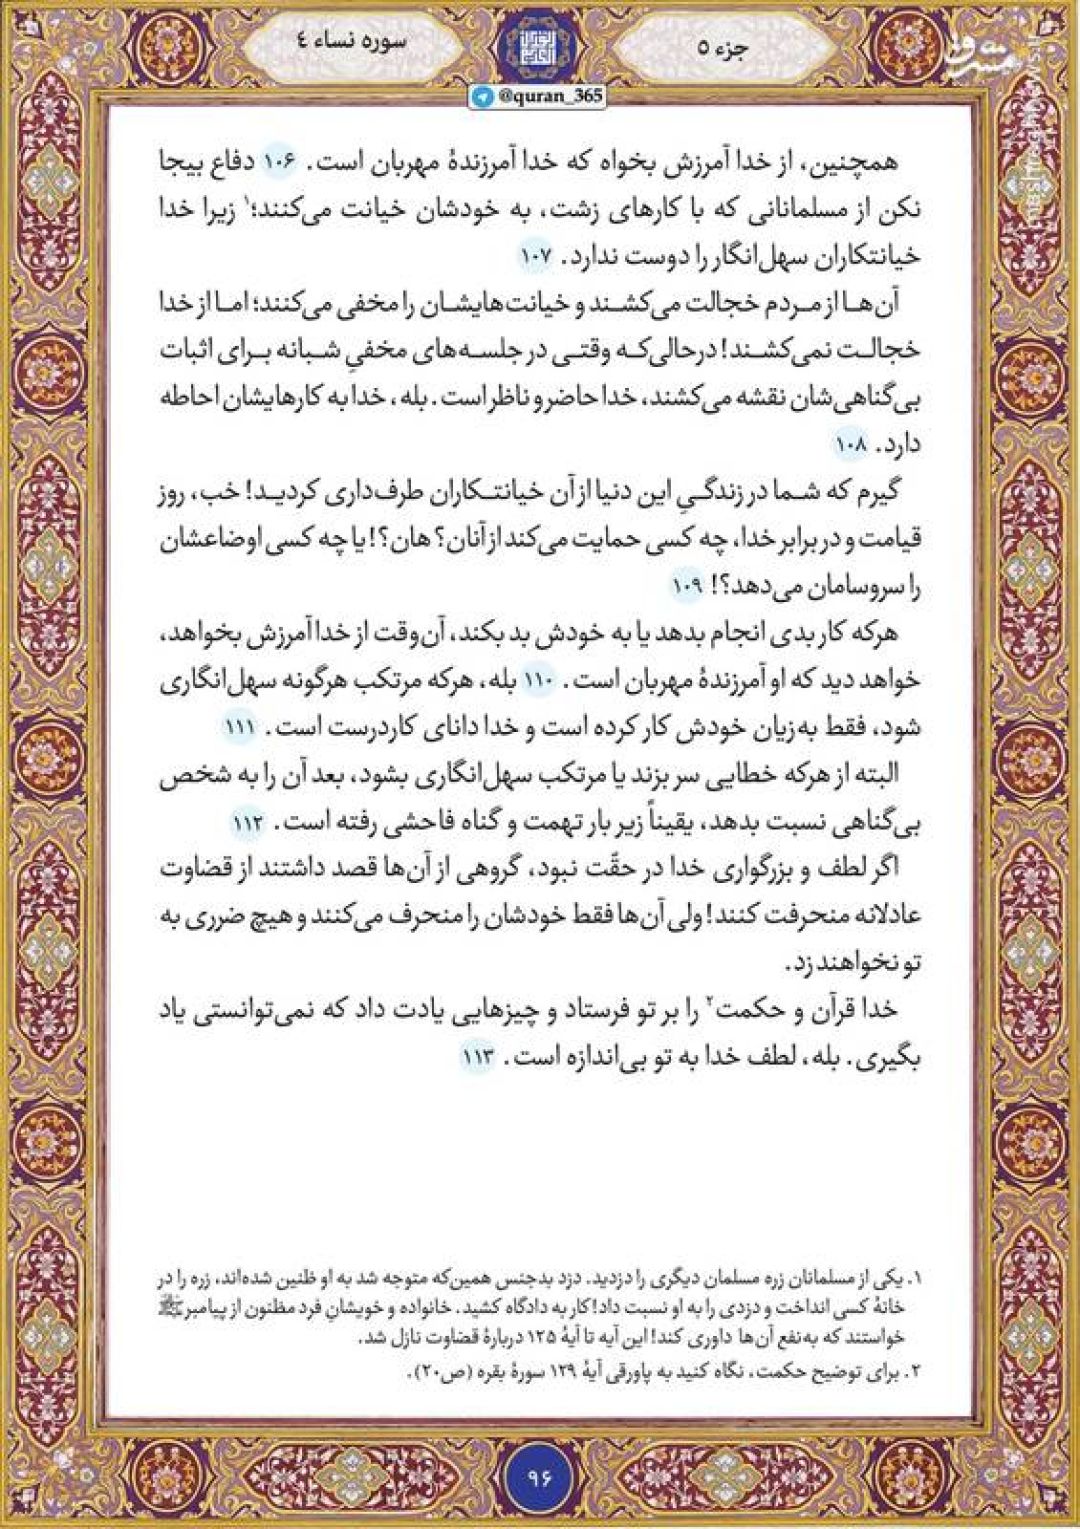 جزء ۵
سوره نساء ۴
مشرق
mashreghnews.ir
@quran_365
همچنین، از خدا آمرزش بخواه که خدا آمرزندهٔ مهربان است. ۱۰۶ دفاع بیجا
نکن از مسلمانانی که با کارهای زشت، به خودشان خیانت می‌کنند؛۱ زیرا خدا
خیانتکاران سهل‌انگار را دوست ندارد. ۱۰۷
آن‌ها از مردم خجالت می‌کشند و خیانت‌هایشان را مخفی می‌کنند؛ اما از خدا
خجالت نمی‌کشند! درحالی‌که وقتی در جلسه‌های مخفیِ شبانه برای اثبات
بی‌گناهی‌شان نقشه می‌کشند، خدا حاضر و ناظر است. بله، خدا به کارهایشان احاطه
دارد. ۱۰۸
گیرم که شما در زندگیِ این دنیا از آن خیانتکاران طرف‌داری کردید! خب، روز
قیامت و در برابر خدا، چه کسی حمایت می‌کند از آنان؟ هان؟! یا چه کسی اوضاعشان
را سروسامان می‌دهد؟! ۱۰۹
هرکه کار بدی انجام بدهد یا به خودش بد بکند، آن‌وقت از خدا آمرزش بخواهد،
خواهد دید که او آمرزندهٔ مهربان است. ۱۱۰ بله، هرکه مرتکب هرگونه سهل‌انگاری
شود، فقط به‌زیان خودش کار کرده است و خدا دانای کاردرست است. ۱۱۱
البته از هرکه خطایی سر بزند یا مرتکب سهل‌انگاری بشود، بعد آن را به شخص
بی‌گناهی نسبت بدهد، یقیناً زیر بار تهمت و گناه فاحشی رفته است. ۱۱۲
اگر لطف و بزرگواری خدا در حقّت نبود، گروهی از آن‌ها قصد داشتند از قضاوت
عادلانه منحرفت کنند! ولی آن‌ها فقط خودشان را منحرف می‌کنند و هیچ ضرری به
تو نخواهند زد.
خدا قرآن و حکمت۲ را بر تو فرستاد و چیزهایی یادت داد که نمی‌توانستی یاد
بگیری. بله، لطف خدا به تو بی‌اندازه است. ۱۱۳
۱. یکی از مسلمانان زره مسلمان دیگری را دزدید. دزد بدجنس همین‌که متوجه شد به او ظنین شده‌اند، زره را در
خانهٔ کسی انداخت و دزدی را به او نسبت داد! کار به دادگاه کشید. خانواده و خویشانِ فرد مظنون از پیامبر ﷺ
خواستند که به‌نفع آن‌ها داوری کند! این آیه تا آیهٔ ۱۲۵ دربارهٔ قضاوت نازل شد.
۲. برای توضیح حکمت، نگاه کنید به پاورقی آیهٔ ۱۲۹ سورهٔ بقره (ص۲۰).
۹۶